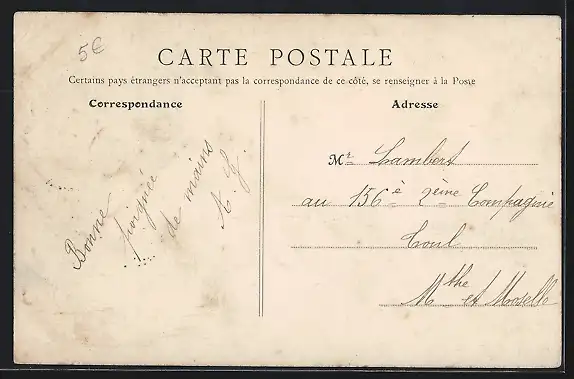 5€
CARTE POSTALE
Certains pays étrangers n'acceptant pas la correspondance de ce côté, se renseigner à la Poste
Correspondance
Bonne
poignée
de mains
Adresse
Mr Lambert
au 156e 2ème Compagnie
Toul
Mthe et Moselle